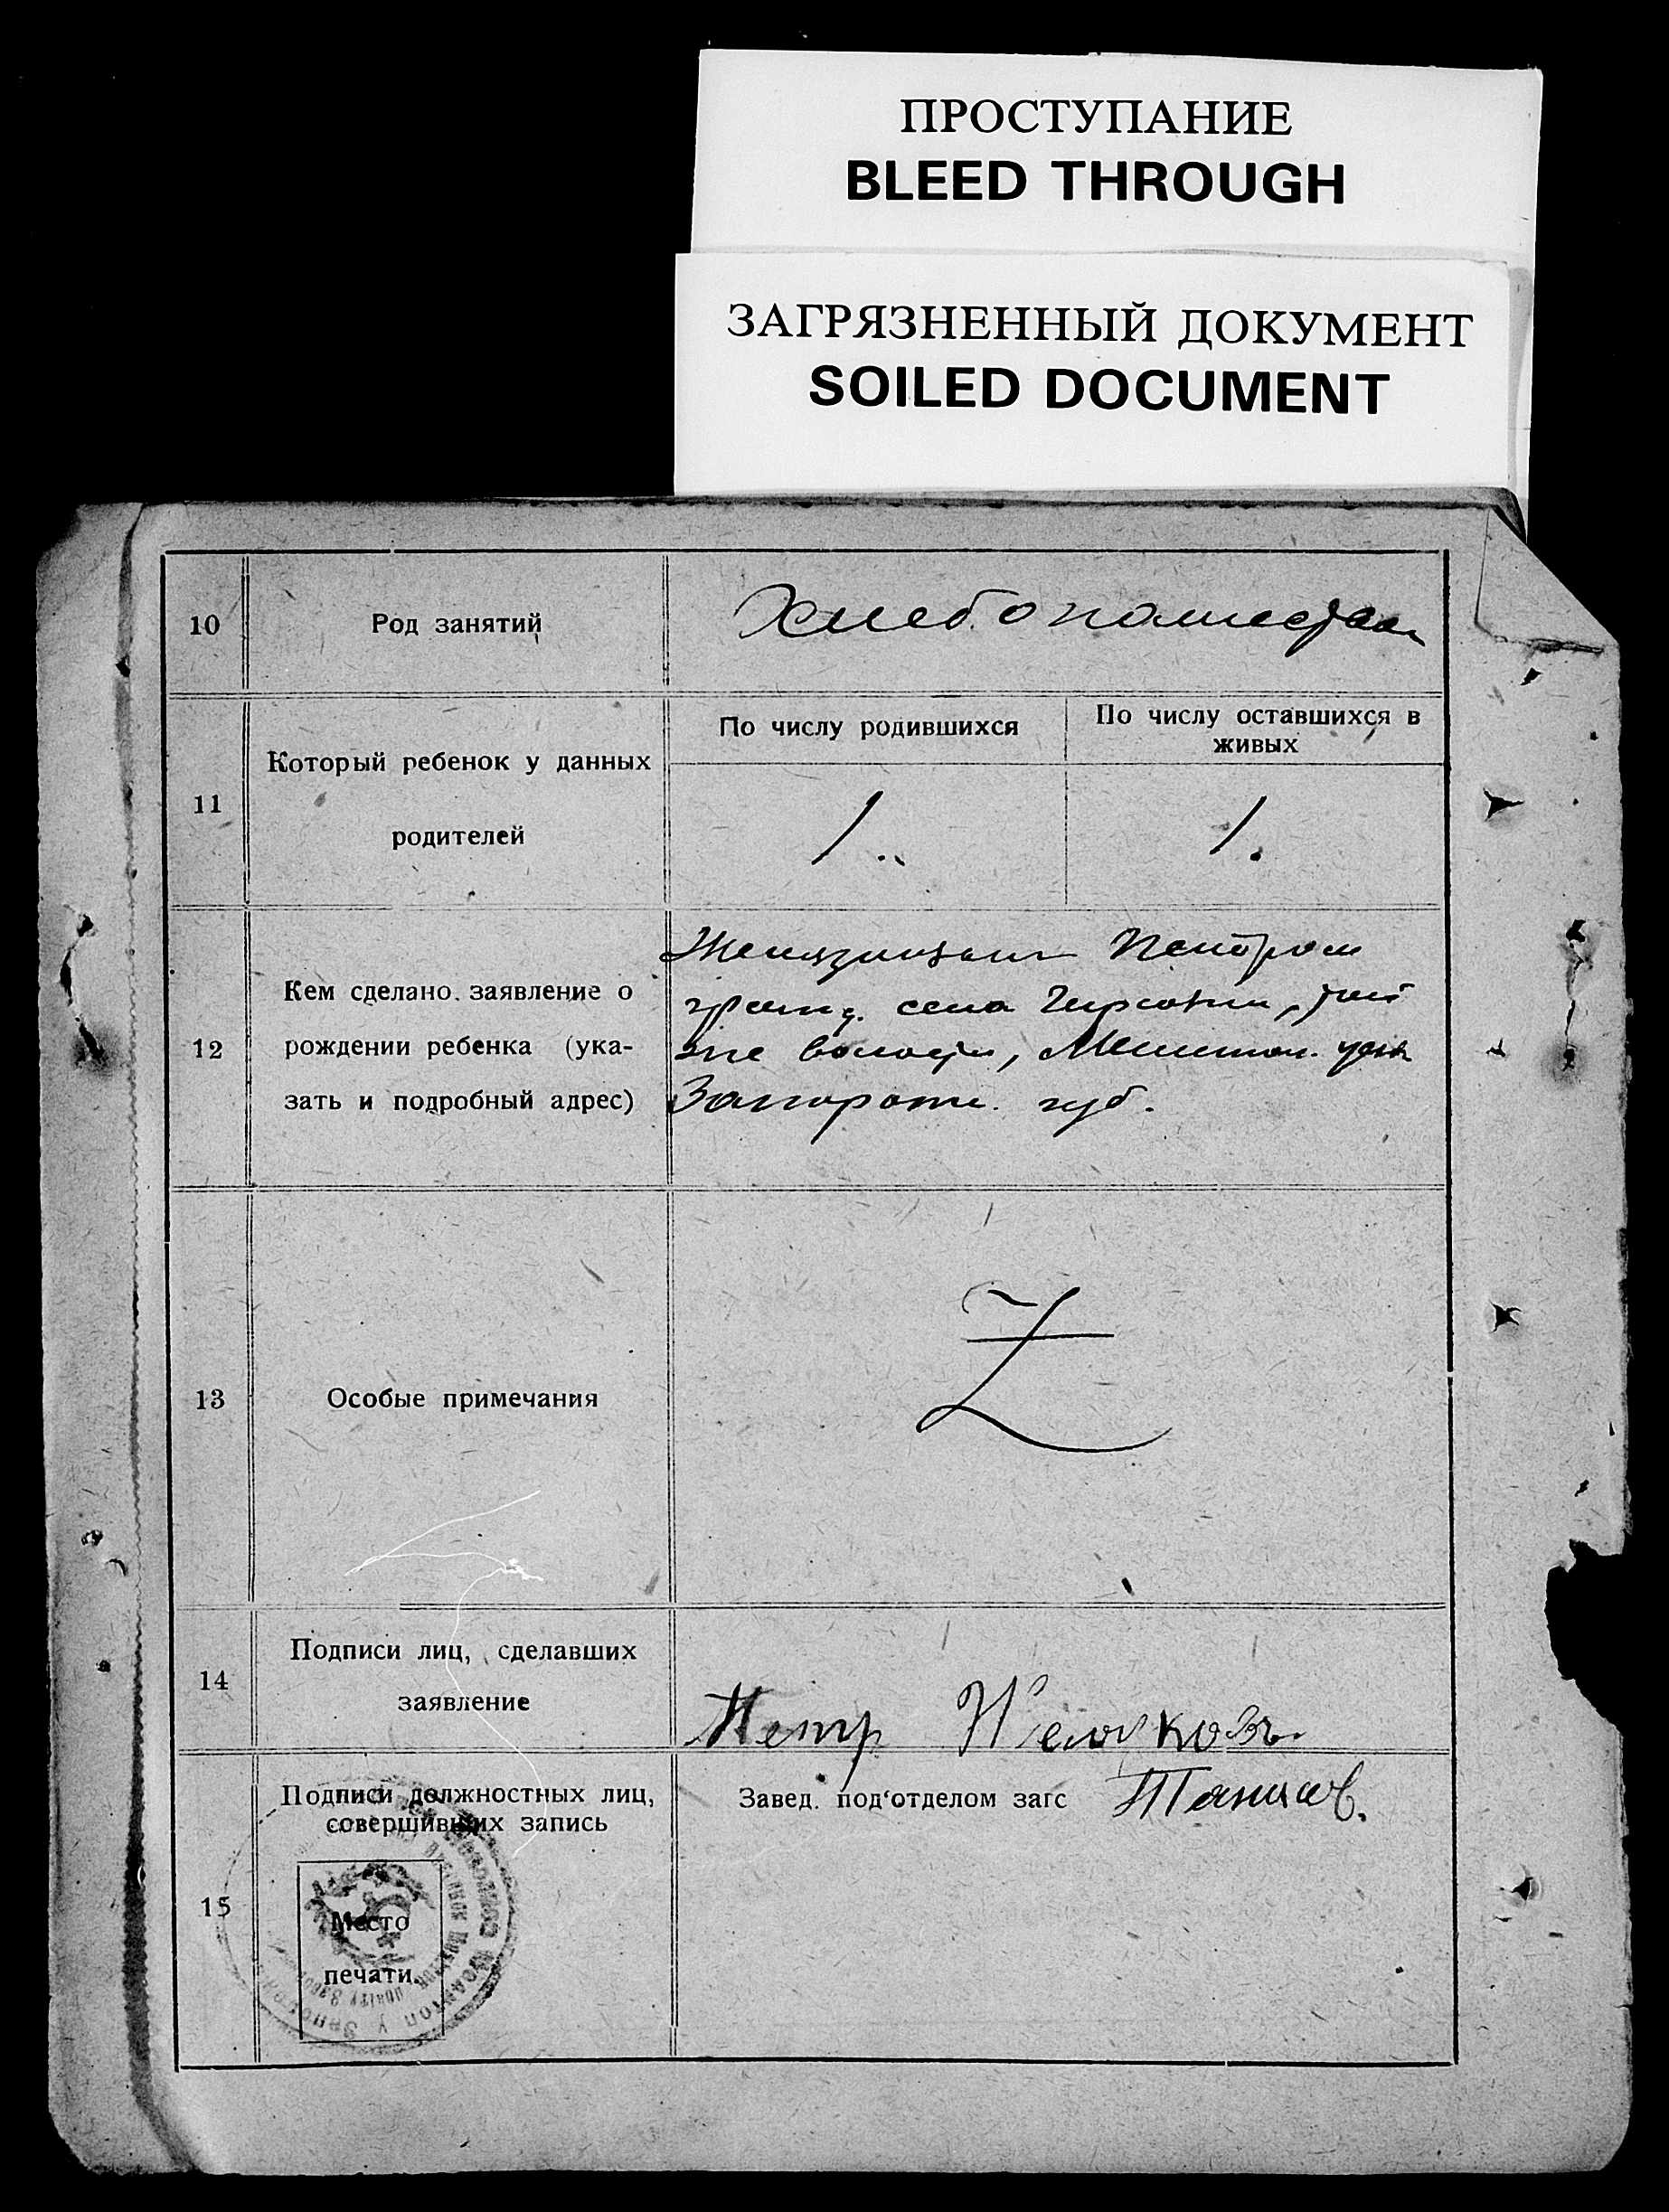 ПРОСТУПАНИЕ
BLEED THROUGH
ЗАГРЯЗНЕННЫЙ ДОКУМЕНТ
SOILED DOCUMENT
10
Род занятий
11
Который ребенок у данных
родителей
По числу родившихся
По числу оставшихся в
живых
1.
1.
12
Кем сделано заявление о
рождении ребенка (ука-
зать и подробный адрес)
Петром
гражд. села той
же волости, уезда
Запорож. губ.
13
Особые примечания
Z
14
Подписи лиц, сделавших
заявление
Петр
15
Подписи должностных лиц,
совершивших запись
Завед. под'отделом загс
Место
печати.